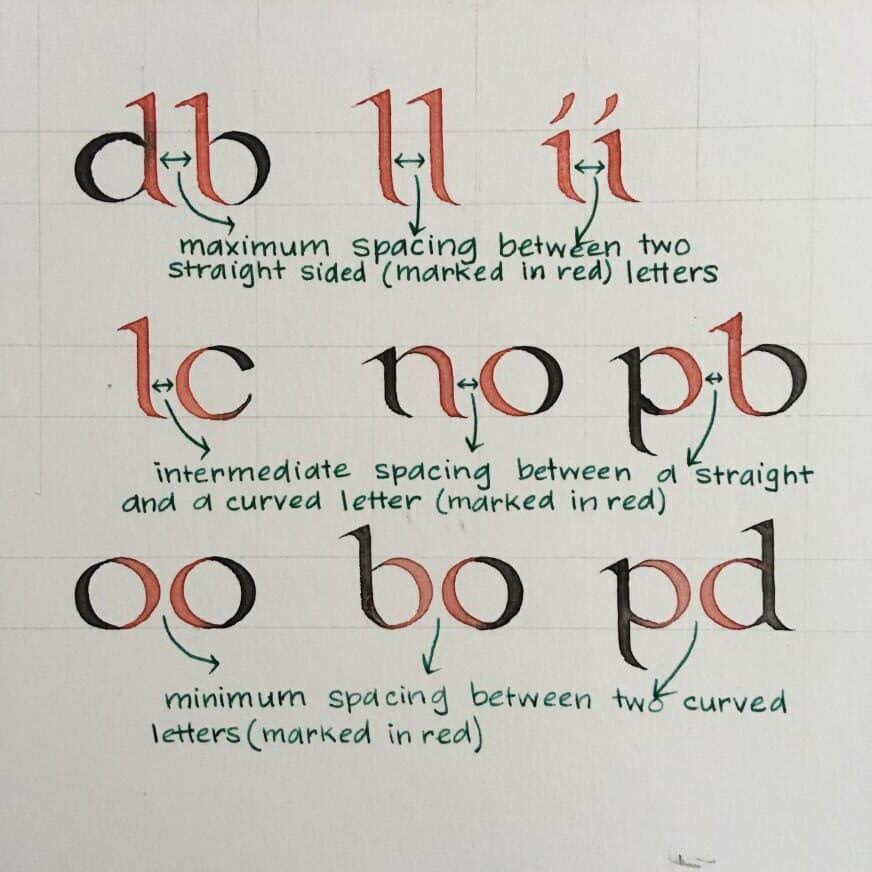 db ll ii
maximum spacing between two
straight sided (marked in red) letters
lc no pb
intermediate spacing between a straight
and a curved letter (marked in red)
oo bo pd
minimum spacing between two curved
letters (marked in red)